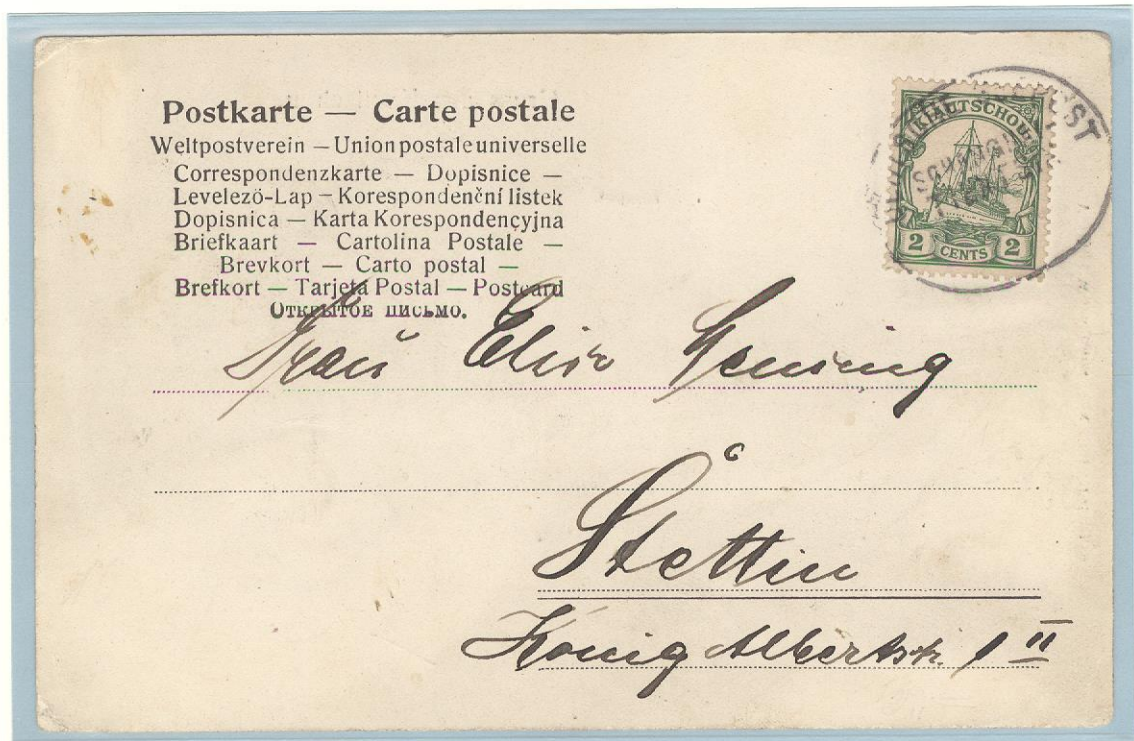 Postkarte — Carte postale
Weltpostverein – Union postale universelle
Correspondenzkarte — Dopisnice —
Levelezö-Lap – Korespondenční listek
Dopisnica — Karta Korespondencyjna
Briefkaart — Cartolina Postale —
Brevkort — Carto postal —
Brefkort — Tarjeta Postal — Postcard
Открытое письмо.
KIAUTSCHOU
2 CENTS 2
Frau Elise
Stettin
König Albertstr. 1 II